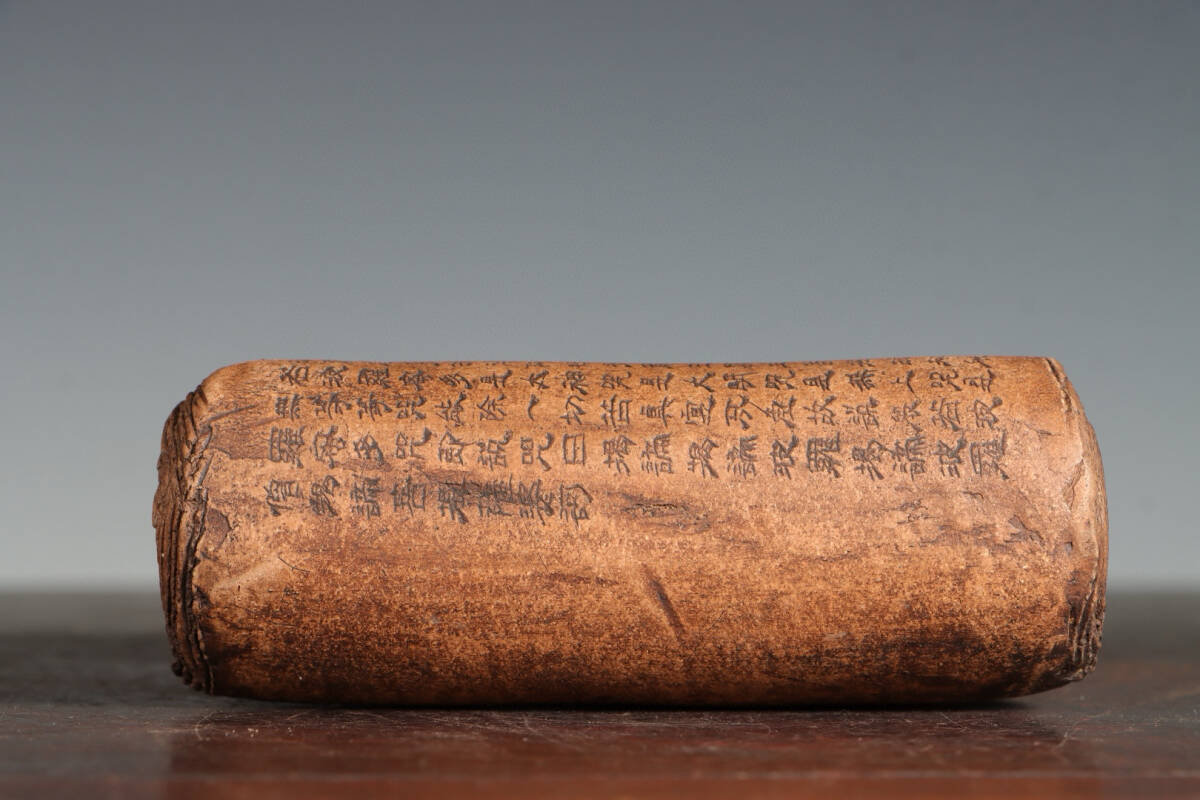 若波羅密多是大神咒是大明咒是無上咒是
無等等咒能除一切苦真實不虛故說般若波
羅密多咒即說咒曰揭諦揭諦波羅揭諦波羅
僧揭諦菩提薩婆訶